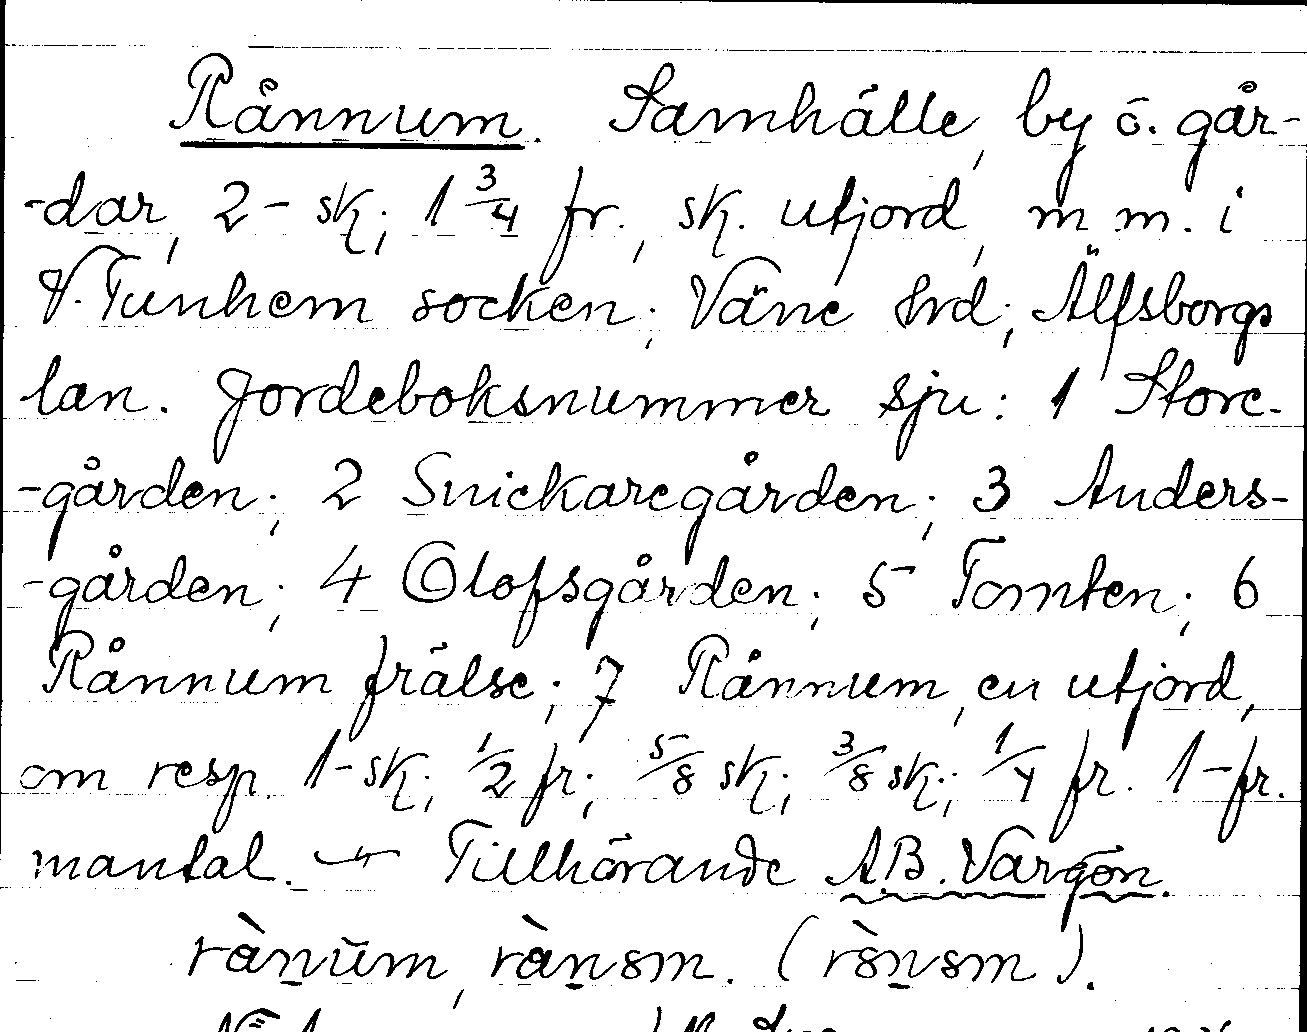 Rånnum. Samhälle, by o. går-
-dar, 2 - sk; 1 3/4 fr., sk. utjord, m m. i
V. Tunhem socken; Väne hrd; Älfsborgs
län. Jordeboksnummer sju: 1 Store-
-gården; 2 Snickaregården; 3 Anders-
-gården; 4 Olofsgården; 5 Tomten; 6
Rånnum frälse; 7 Rånnum, en utjord,
om resp. 1 - sk; 1/2 fr; 5/8 sk; 3/8 sk; 1/4 fr. 1 - fr.
mantal. — Tillhörande A.B. Vargön.